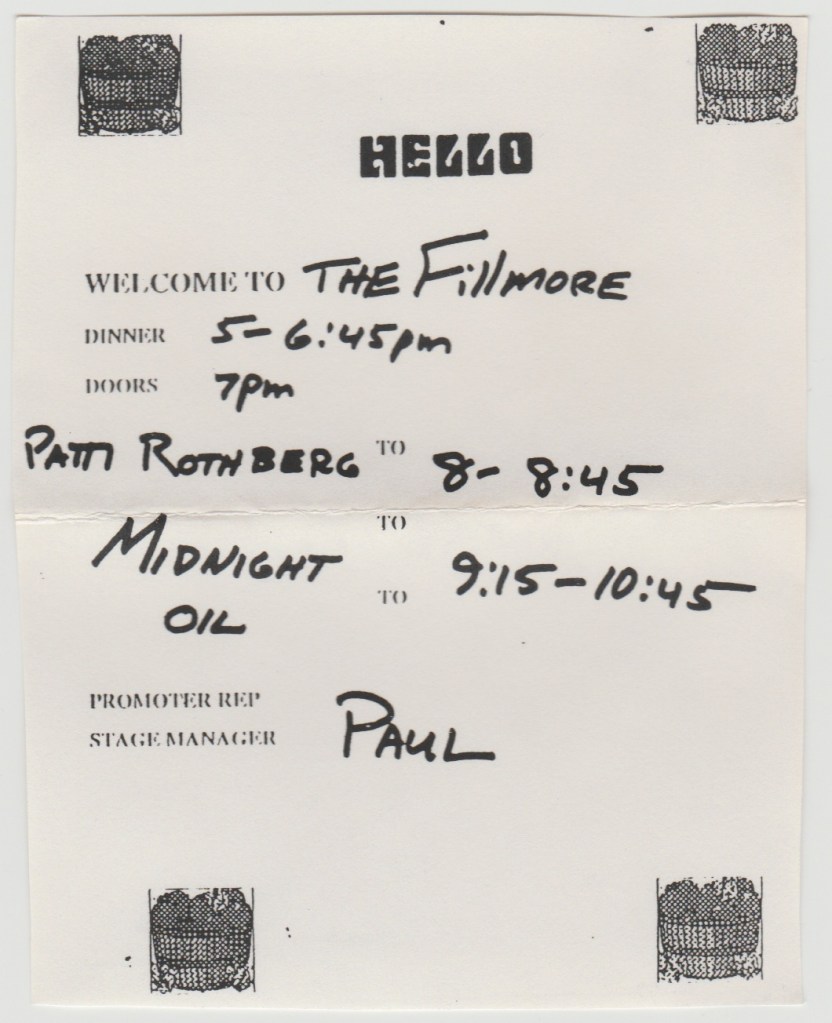 HELLO
WELCOME TO THE Fillmore
DINNER 5-6:45pm
DOORS 7pm
PATTI ROTHBERG TO 8-8:45
TO
MIDNIGHT 9:15-10:45
OIL TO
PROMOTER REP
STAGE MANAGER PAUL